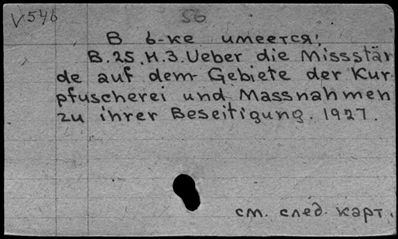 V546
56
В б-ке имеется:
B.25, H.3. Ueber die Missstän
de auf dem Gebiete der Kur
pfuscherei und Massnahmen
zu ihrer Beseitigung. 1927.
см. след. карт.